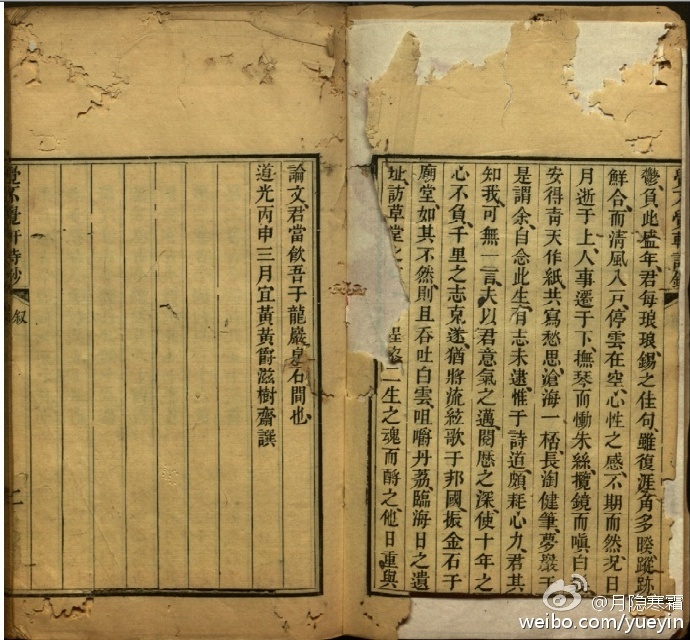 鬱負此盛年君每琅琅錫之佳句雖復涯角多暌蹤跡
鮮合而清風入戸停雲在空心性之感不期而然況日
月逝于上人事遷于下撫琴而慟朱絲攬鏡而嗔白
安得靑天作紙共寫愁思滄海一桮長淘健筆夢嚴
是謂余自念此生有志未逮惟于詩道頗耗心力君其
知我可無一言夫以君意氣之邁閱歴之深使十年之
心不負千里之志克遂猶將流絃歌于邦國振金石于
廟堂如其不然則且吞吐白雲咀嚼丹荔臨海日之遺
址訪草堂之 二生之魂而酹之他日重與
論文君當飲吾于龍巖 石間也
道光丙申三月宜黃黃爵滋樹齋譔
覺不覺軒詩鈔 叙 二
@月隐寒霜
weibo.com/yueyin